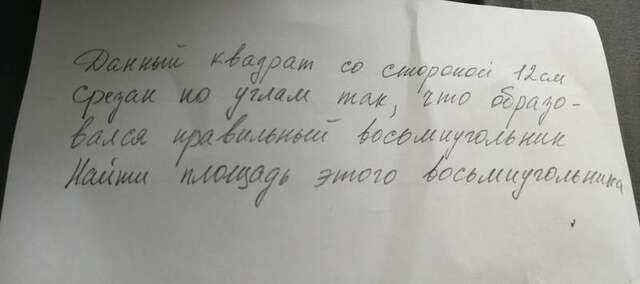 Данный квадрат со стороной 12см
срезан по углам так, что образо-
вался правильный восьмиугольник
Найти площадь этого восьмиугольника